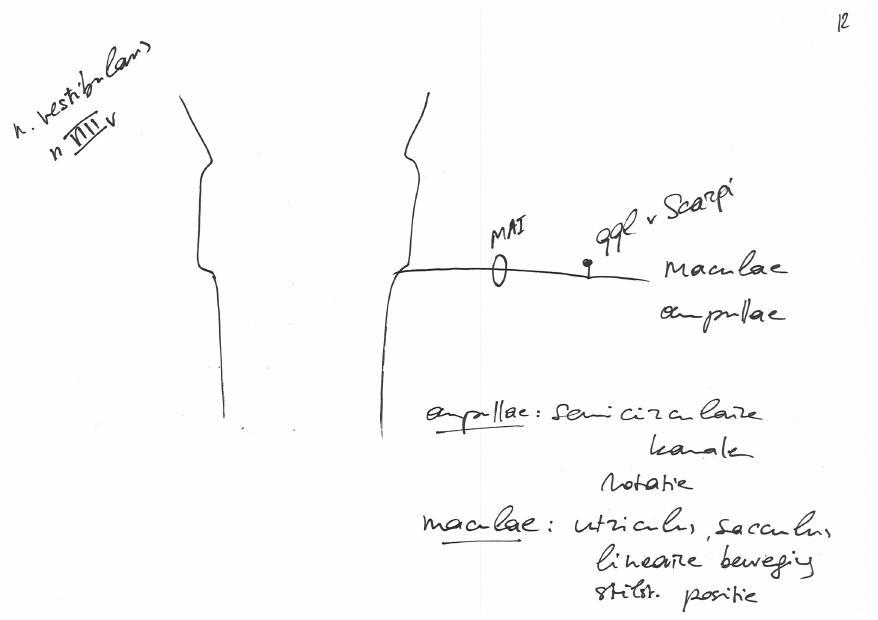 12
n. vestibularis
n VIII v
MAI
ggl v Scarpi
Maculae
ampullae
ampullae: semicirculaire
kanalen
Rotatie
maculae: utriculus, sacculus
lineaire beweging
positie